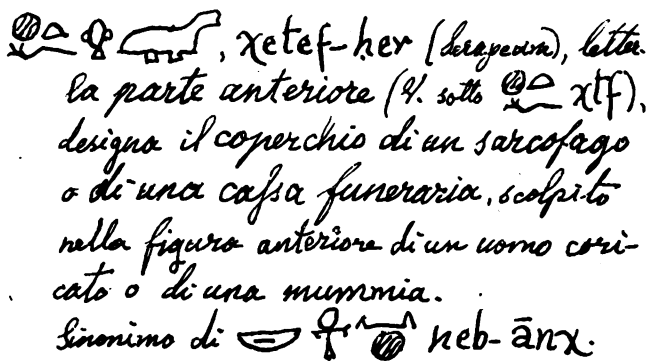 𓐍𓏏𓆑𓁷, χetef-her (Serapeum), letter.
la parte anteriore (V. sotto 𓐍𓏏𓆑 χtf),
designa il coperchio di un sarcofago
o di una caſsa funeraria, scolpito
nella figura anteriore di un uomo cori-
cato o di una mummia.
Sinonimo di 𓎟𓋹𓈖𓐍 neb-ānχ.